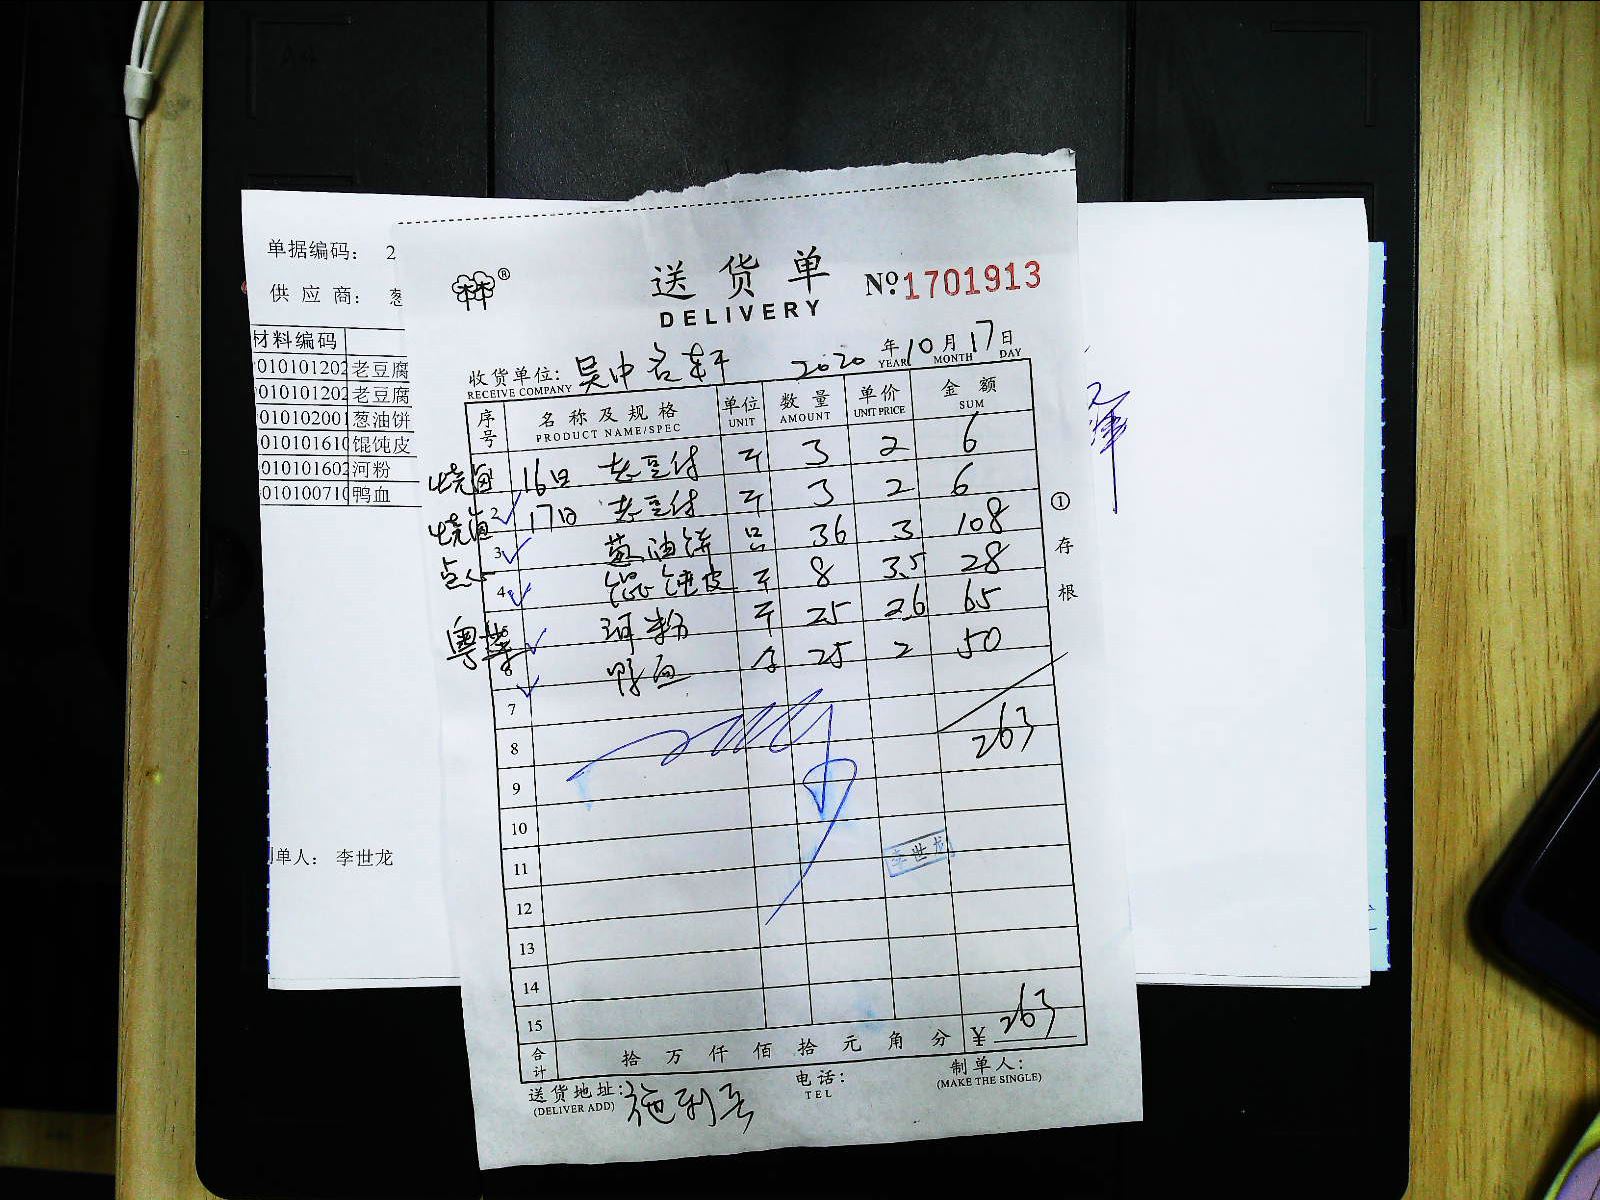 单据编码： 2
供 应 商： 葱
材料编码
010101202 老豆腐
010101202 老豆腐
010102001 葱油饼
010101610 馄饨皮
010101602 河粉
010100710 鸭血
制单人： 李世龙
林®
送货单
DELIVERY
№ 1701913
收货单位: 吴中名轩 2020 年 10 月 17 日
RECEIVE COMPANY YEAR MONTH DAY
序号 名称及规格 单位 数量 单价 金额
PRODUCT NAME/SPEC UNIT AMOUNT UNIT PRICE SUM
烧卤 16日 老豆付 斤 3 2 6
烧卤 2 17日 老豆付 斤 3 2 6
点心 3 葱油饼 只 36 3 108
4 馄饨皮 斤 8 3.5 28
粤菜 河粉 斤 25 2.6 65
鸭血 个 25 2 50
7
8 263
9
10
11 李世龙
12
13
14
15
合计 拾 万 仟 佰 拾 元 角 分 ¥ 263
①存根
送货地址: 施利兵 电话: 制单人:
(DELIVER ADD) TEL (MAKE THE SINGLE)